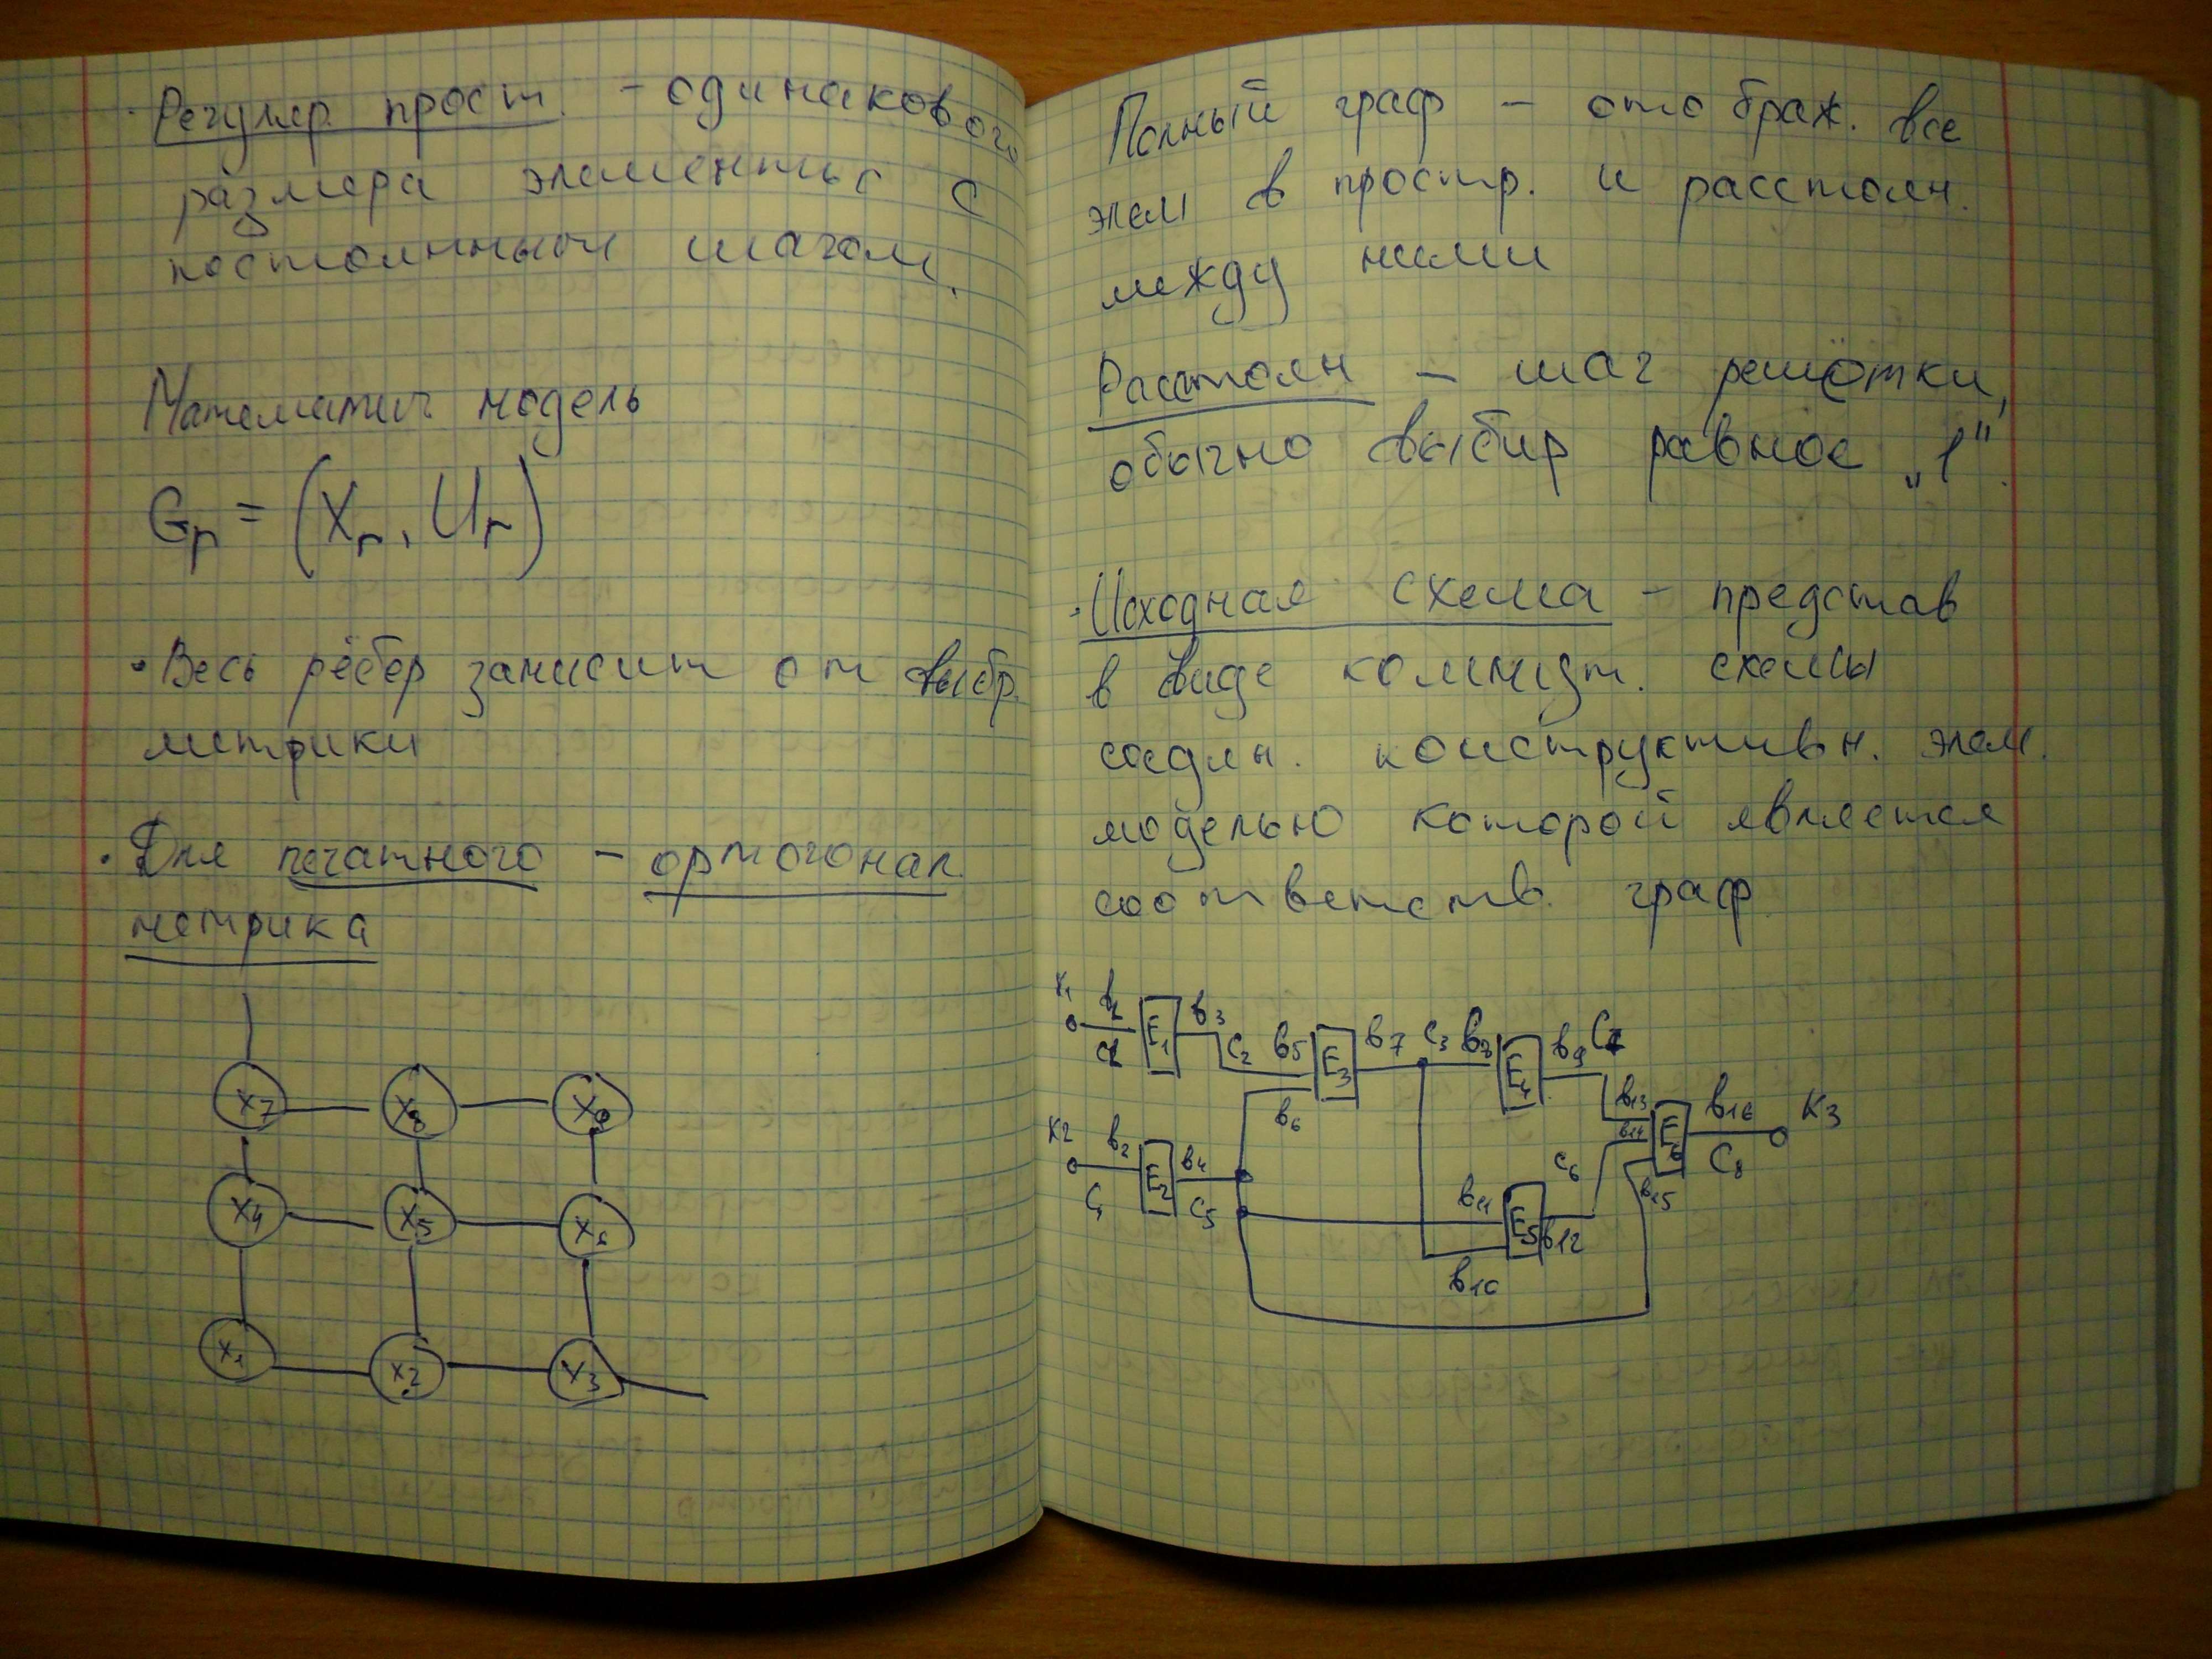 · Регуляр. прост. – одинакового
размера элементы с
постоянным шагом.
Математич модель
Gr = (Xr, Ur)
• Весь рёбер зависит от выбр.
метрики
· Для печатного – ортогонал.
метрика
X7 X8 X9
X4 X5 X6
X1 X2 X3
Полный граф – отображ. все
элем в простр. и расстоян.
между ними
Расстоян – шаг решётки,
обычно выбир равное „1".
· Исходная схема – представ
в виде коммут. схемы
соедин. конструктивн. элем.
моделью которой является
соответств. граф
K1 E1 в3 C2 в5 E3 в7 C3 в8 E4 в9
в6 в13
в14 E6 в16 K3
K2 в2 E2 в4 C6 C8
C5 в11 E5 в12 в15
в10